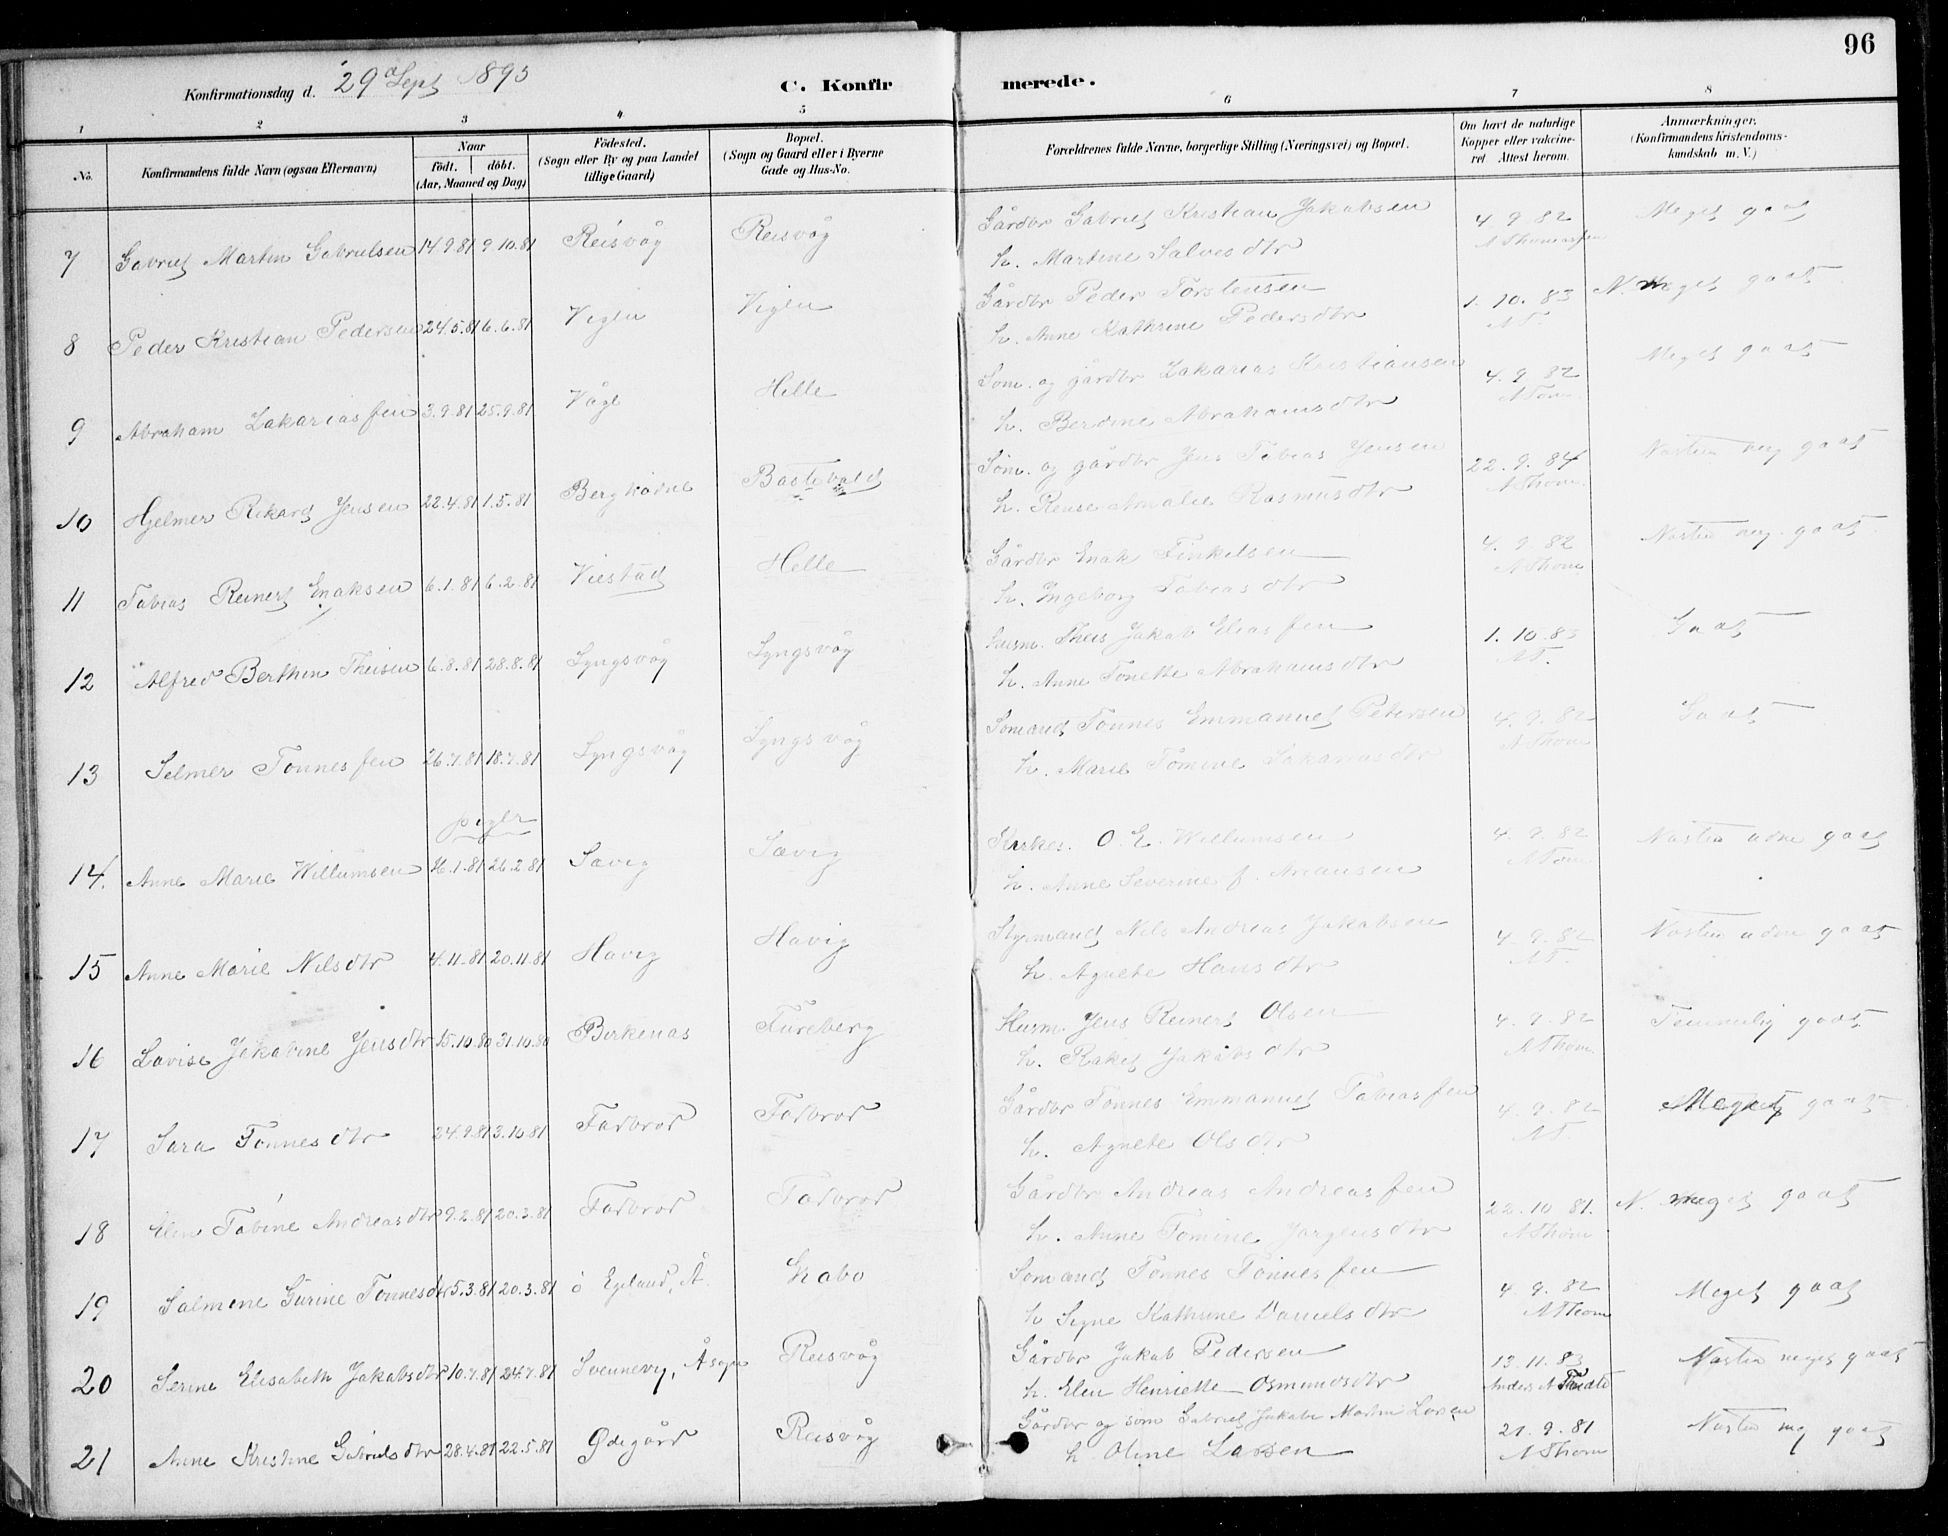 96
Konfirmationsdag d. 29 Sept 1895 C. Konfirmerede.
1 2 3 4 5 6 7 8
No. Konfirmandens fulde Navn (ogsaa Efternavn) Naar født. døbt. (Aar, Maaned og Dag) Fødested. (Sogn eller By og paa Landet tillige Gaard) Bopæl. (Sogn og Gaard eller i Byerne Gade og Hus-No. Forældrenes fulde Navne, borgerlige Stilling (Næringsvei) og Bopæl. Om havt de naturlige Kopper eller vakcineret Attest herom. Anmærkninger, (Konfirmandens Kristendomskundskab m. V.)
7 Gabriel Martin Gabrielsen 14.9.81 9.10.81 Reisvåg Reisvåg Gårdbr Gabriel Kristian Jakobsen 4.9.82 Meget godt
h. Martine Salvesdtr N Thomassen
8 Peder Kristian Pedersen 24.5.81 6.6.81 Viglen Viglen Gårdbr Peder Torstensen 1.10.83 N. meget godt
h. Anne Kathrine Pedersdtr NT.
9 Abraham Zakariassen 3.9.81 25.9.81 Våge Helle Søm. og gårdbr Zakarias Kristiansen 4.9.82 Meget godt
h. Berdine Abrahamsdtr N Tom.
10 Hjelmer Rikard Jensen 22.4.81 1.5.81 Bergkådne Søm. og gårdbr Jens Tobias Jensen 22.9.84 Næsten meg godt
h. Rense Amalie Rasmusdtr N Thom
11 Tobias Reinert Enoksen 6.1.81 6.2.81 Viestad Helle Gårdbr Enok Finkelsen 4.9.82 Næsten meg. godt
h. Ingeborg Tobiasdtr N Thom
12 Alfred Berthin Theisen 6.8.81 28.8.81 Lyngsvåg Lyngsvåg Husm. Theis Jakob Eliassen 1.10.83 Godt
h. Anne Tonette Abrahamsdtr NT.
13 Selmer Tønnessen 26.7.81 18.7.81 Lyngsvåg Lyngsvåg Sømand Tønnes Emmanuel Petersen 4.9.82 Godt
h. Marie Tomine Zakariasdtr N Thom
piger
14. Anne Marie Willumsen 16.1.81 26.2.81 Sævig Sævig Kirkes. O. E. Willumsen 4.9.82 Næsten udm godt
h. Anne Severine f. N Tom
15 Anne Marie Nilsdtr 4.11.81 20.11.81 Håvig Håvig Styrmand Nils Andreas Jakobsen 4.9.82 Næsten udm godt
h. Agnete Hansdtr NT.
16 Lovise Jakobine Jensdtr 15.10.80 31.10.80 Birkenæs Fureberg Husm. Jens Reinert Olsen 4.9.82 Temmelig godt
h. Rakel Jakobsdtr N Thom.
17 Sara Tønnesdtr 24.9.81 3.10.81 Fadbrod Fadbrod Gårdbr Tønnes Emmanuel Tobiassen 4.9.82 Meget godt
h. Agnete Olsdtr NT.
18 Elen Tobine Andreasdtr 9.2.81 20.3.81 Fadbrod Fadbrod Gårdbr Andreas Andreassen 22.10.81. N. meget godt
h. Anne Tomine Jørgensdtr N Thom
19 Salmine Gurine Tønnesdtr 5.3.81 20.3.81 ø Egeland, Å. Skabo Sømand Tønnes Tønnessen 4.9.82 Meget godt
h Signe Kathrine Danielsdtr N Thom
20 Serine Elisabeth Jakobsdtr 10.7.81 24.7.81 Svennevig, Å sogn Reisvåg Gårdbr Jakob Pedersen 13.11.83 Næsten meget godt
h. Elen Henriette Osmundsdtr Anders N
21 Anne Kristine Gabrielsdtr 28.4.81 22.5.81 Ødegård Reisvåg Gårdbr og søm Gabriel Jakob Martin Larsen 21.9.81 Næsten meg godt
h. Oline Larsen N Thom